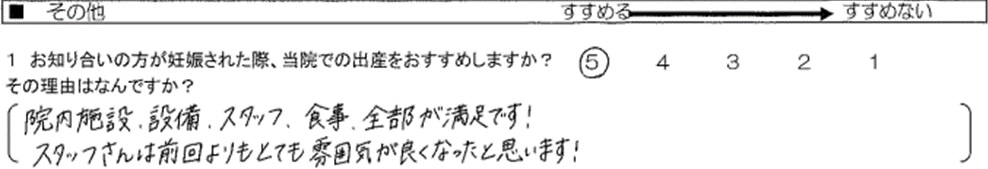 ■ その他 すすめる すすめない
1 お知り合いの方が妊娠された際、当院での出産をおすすめしますか? 5 4 3 2 1
その理由はなんですか?
院内施設、設備、スタッフ、食事、全部が満足です!
スタッフさんは前回よりもとても雰囲気が良くなったと思います!